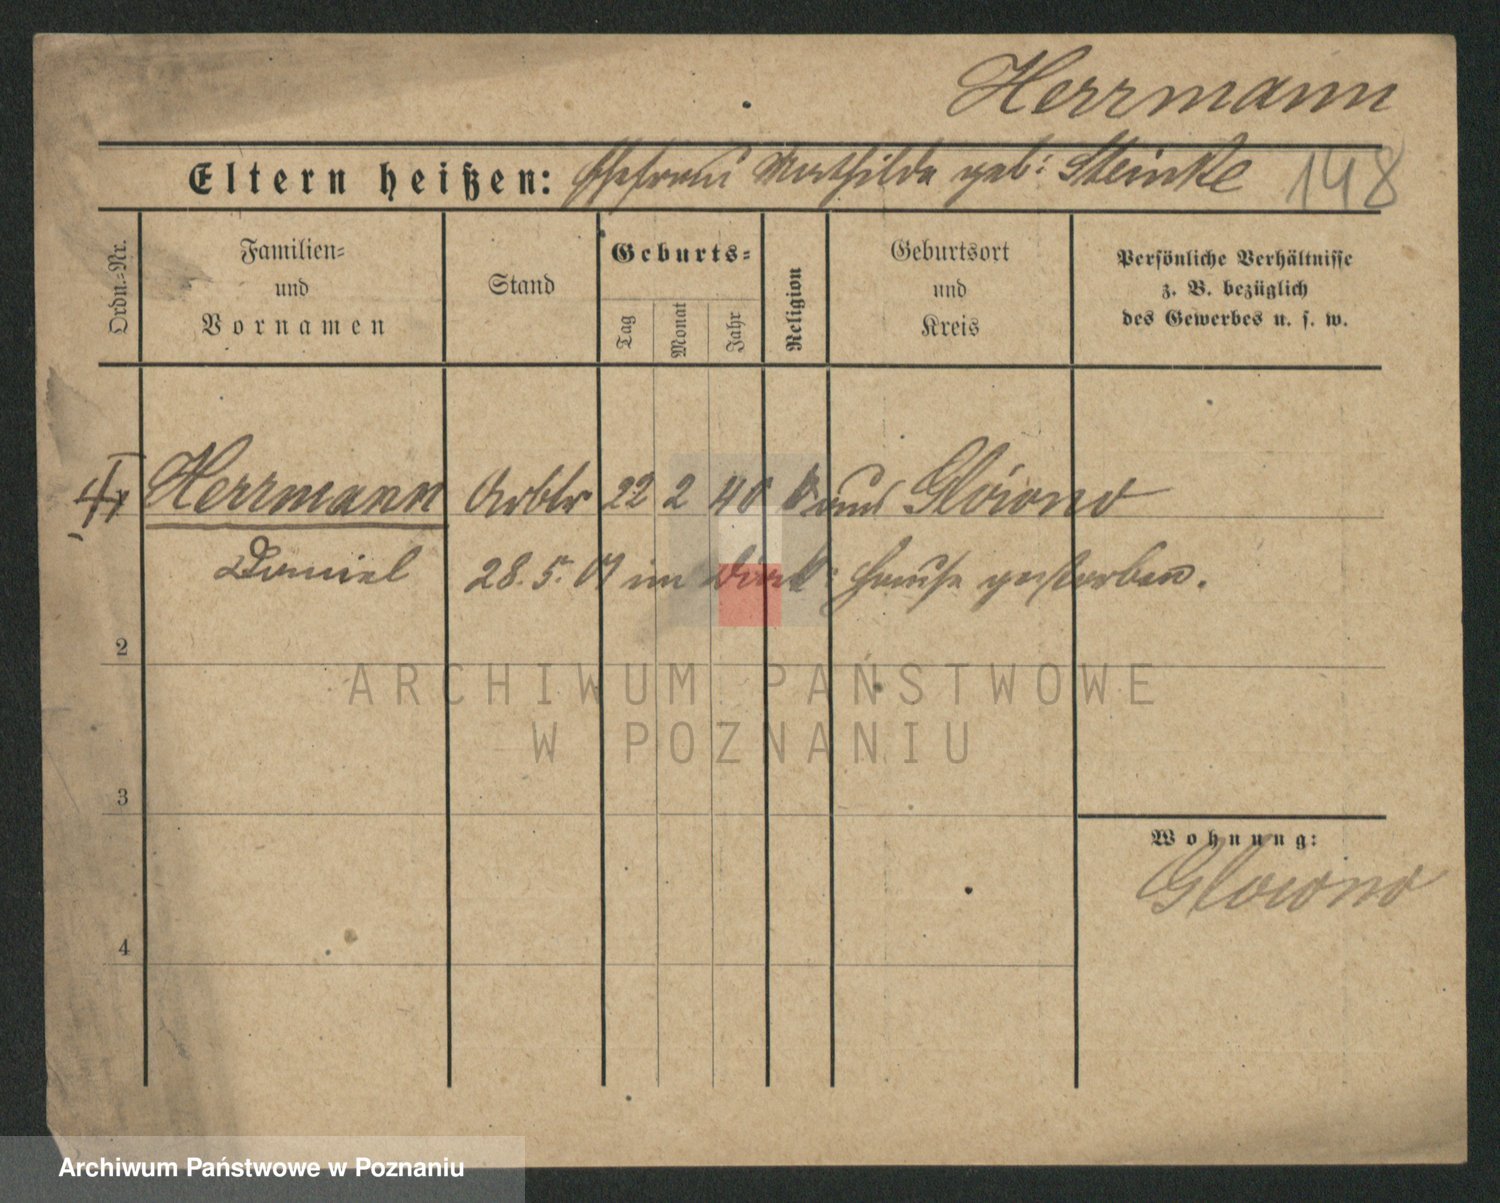 Herrmann
Eltern heißen: Ehefrau Mathilde geb: Steinke 148
Ordn.-Nr.
Familien-
und
Vornamen
Stand
Geburts-
Tag
Monat
Jahr
Religion
Geburtsort
und
Kreis
Persönliche Verhältnisse
z. B. bezüglich
des Gewerbes u. s. w.
Herrmann Arbtr 22 2 40 Gloiono
Daniel 28. 5. 01 im hause gestorben.
2
3
4
Wohnung:
Gloiono
ARCHIWUM PAŃSTWOWE
W POZNANIU
Archiwum Państwowe w Poznaniu